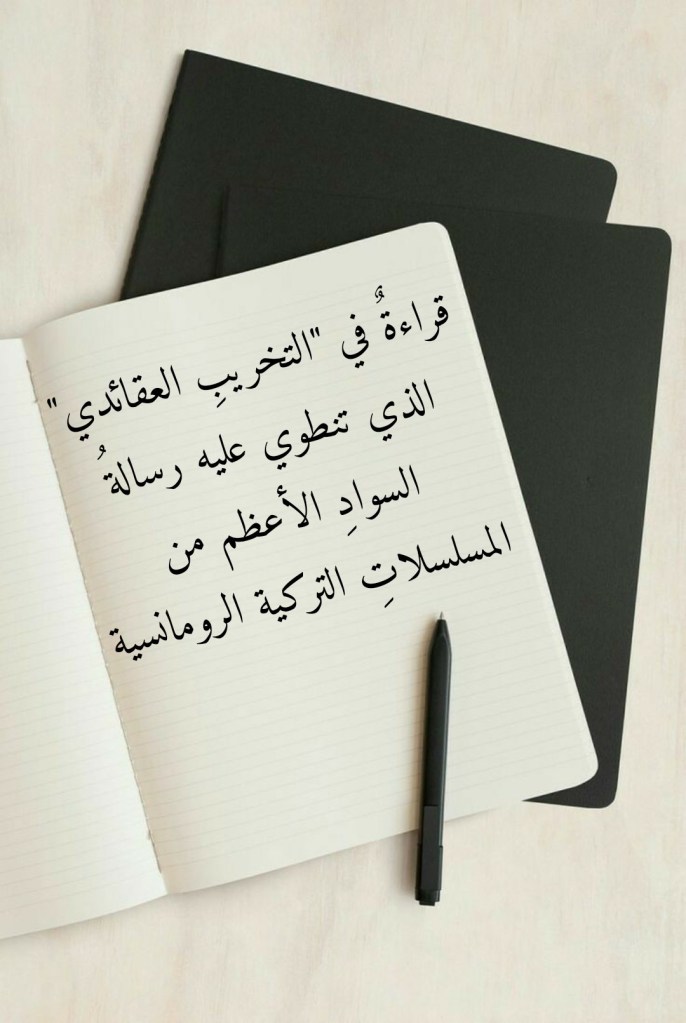 قراءةٌ في "التخريبِ العقائدي"
الذي تنطوي عليه رسالةُ
السوادِ الأعظم من
المسلسلاتِ التركية الرومانسية